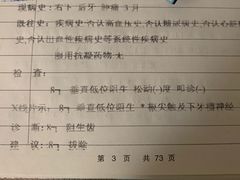 现病史: 右下 后牙 肿痛 3月
既往史: 疾病史:否认高血压史,否认糖尿病史,否认心脏
史,否认出血性疾病史等系统性疾病史
服用抗凝药物:无
检 查:
8┐ 垂直低位阻生 松动(-)度 叩诊(-)
X线片示: 8┐ 垂直低位阻生 *根尖触及下牙槽神经
诊 断: 8┐ 阻生齿
建 议: 8┐ 拔除
第 3 页 共 73 页